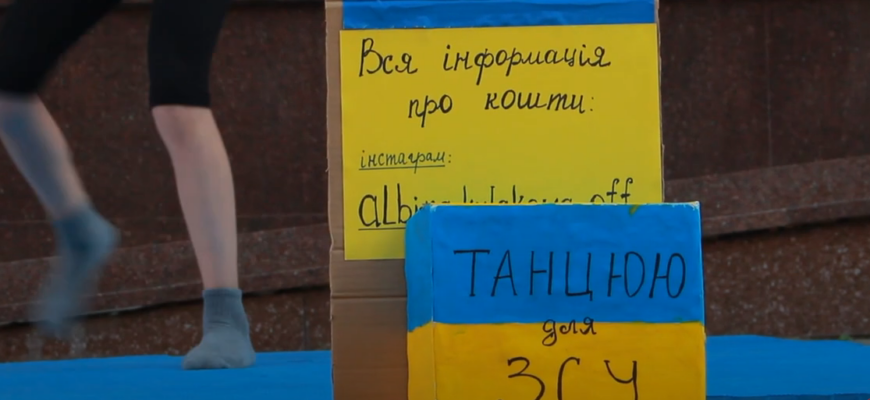 Вся інформація
про кошти:
інстаграм:
ТАНЦЮЮ
для
ЗСУ